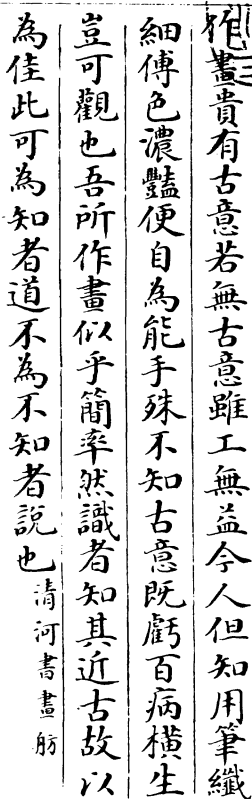 作畫貴有古意若無古意雖工無益今人但知用筆纖
細傅色濃豔便自為能手殊不知古意既虧百病橫生
豈可觀也吾所作畫似乎簡率然識者知其近古故以
為佳此可為知者道不為不知者說也 清河書畫舫